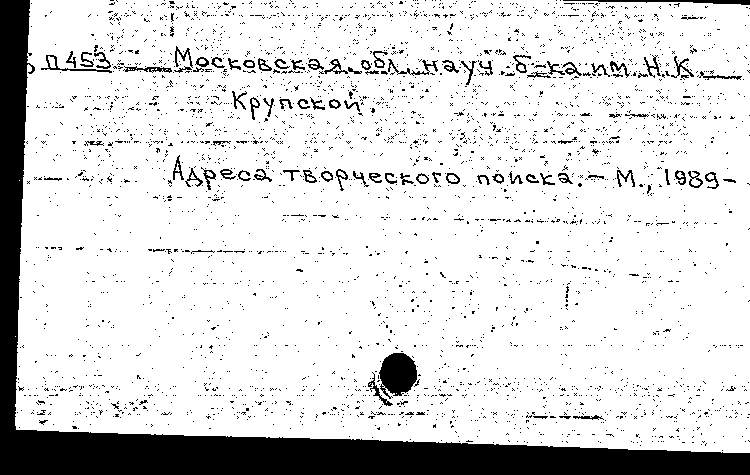 П453 Московская обл. науч. б-ка им. Н.К.
Крупской.
Адреса творческого поиска. - М., 1989-